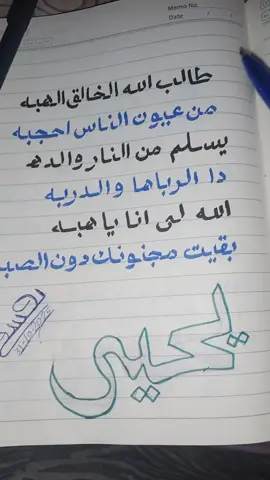 Memo No.
Date / /
طالب الله الخالقي الهبه
من عيون الناس احجبه
يسلم من النار والدهـ
دا الرباها والدربه
الله لى انا يا هبه
بقيت مجنونك دون الصبـ
يحيى